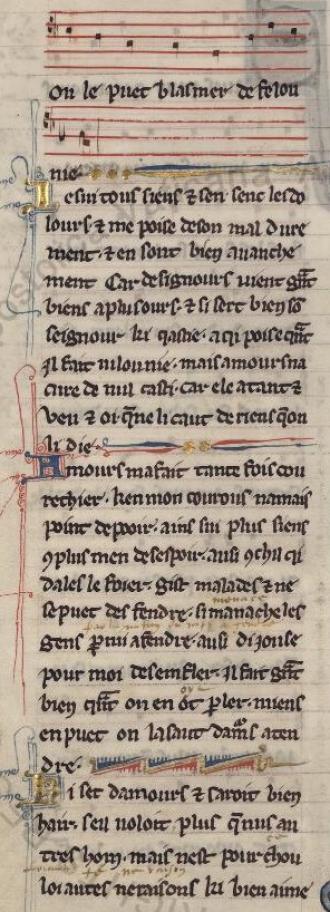 On le puet blasmer de felon
nie.
Je sui tous siens ⁊ sen senc les do
lours ⁊ me poise de son mal dure
ment. ⁊ en sont bien auanche
ment Car de signours uient gnt
biens a plusours. ⁊ si sert bien so
seignour ki qastie. a qi poise qnt
Il fait uilounie. mais amours na
cure de nul casti. car ele a tant ⁊
veu ⁊ oi. qne li caut de riens qon
li die.
Amours ma fait tante fois cou
rechier. ken mon courous namais
point de pooir. ains sui plus siens
9 plus men desespoir. ausi 9 chil qi
dales le foier. gist malades ⁊ ne
se puet desfendre. si manache les
gens p lui afendre. ausi di jou se
pour moi desenfler. Il fait gnt
bien qnt on en ot pler. miens
en puet on lasaut dams aten
dre.
Ki set damours ⁊ saroit bien
hair. seu uoloit plus q nus au
tres hom. mais nest pour chou
loiautes ne raisons ki bien aime